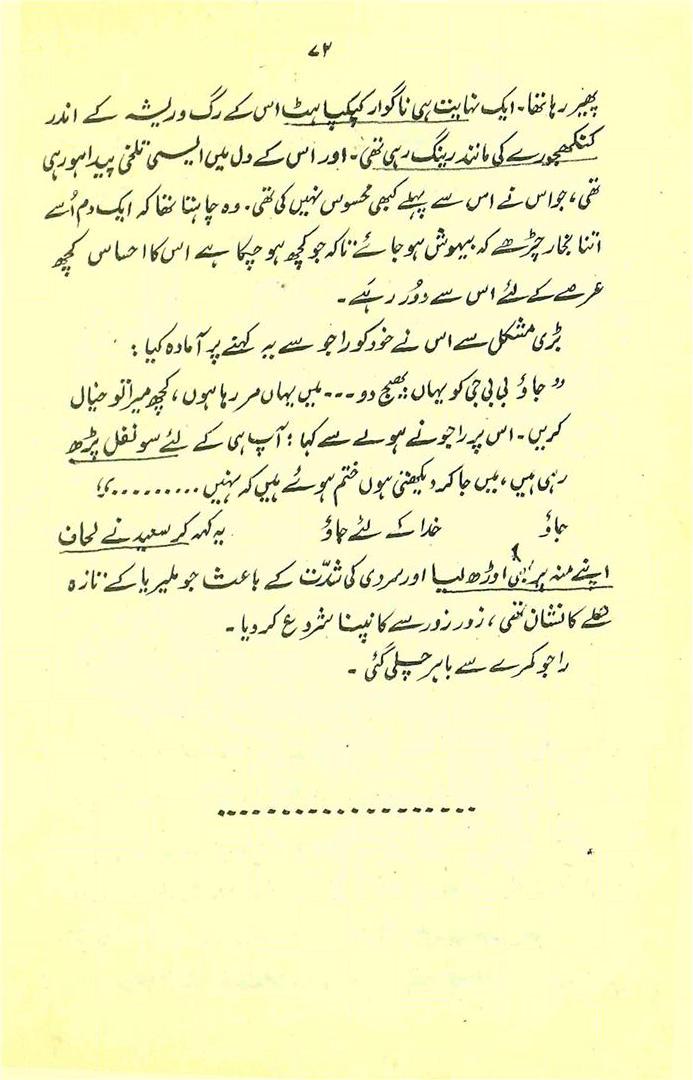 ۷۲
پھیر رہا تھا۔ ایک نہایت ہی ناگوار کپکپاہٹ اس کے رگ و ریشہ کے اندر
کنکھجورے کی مانند رینگ رہی تھی۔ اور اس کے دل میں ایسی تلخی پیدا ہو رہی
تھی، جو اس نے اس سے پہلے کبھی محسوس نہیں کی تھی۔ وہ چاہتا تھا کہ ایک دم اُسے
اتنا بخار چڑھے کہ بیہوش ہو جائے تاکہ جو کچھ ہو چکا ہے اس کا احساس کچھ
عرصے کے لئے اس سے دُور رہے۔
بڑی مشکل سے اس نے خود کو راجو سے یہ کہنے پر آمادہ کیا:
”جاؤ بی بی جی کو یہاں بھیج دو --- میں یہاں مر رہا ہوں، کچھ میرا تو خیال
کریں۔ اس پر راجو نے ہولے سے کہا؛ آپ ہی کے لئے سو نفل پڑھ
رہی ہیں، میں جا کر دیکھتی ہوں ختم ہوئے ہیں کہ نہیں .........“
جاؤ خدا کے لئے جاؤ یہ کہہ کر سعید نے لحاف
اپنے منہ پر بھی اوڑھ لیا اور سردی کی شدّت کے باعث جو ملیریا کے تازہ
حملے کا نشان تھی، زور زور سے کانپنا شروع کر دیا۔
راجو کمرے سے باہر چلی گئی۔
...................